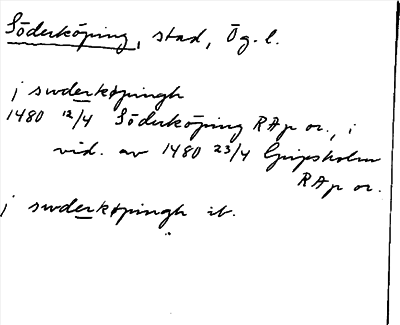 Söderköping, stad, Ög. l.
j swderkøpingh
1480 12/4 Söderköping RAp or., i
vid. av 1480 23/4 Gripsholm
RAp or.
j swderkøpingh ib.